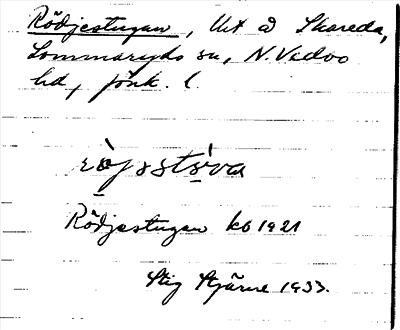 Rödjestugan, Ut å Skareda,
Lommaryds sn, N. Vedbo
hd, Jönk. l.
röjsstòva
Rödjestugan kb 1921
Stig Stjärne 1933.